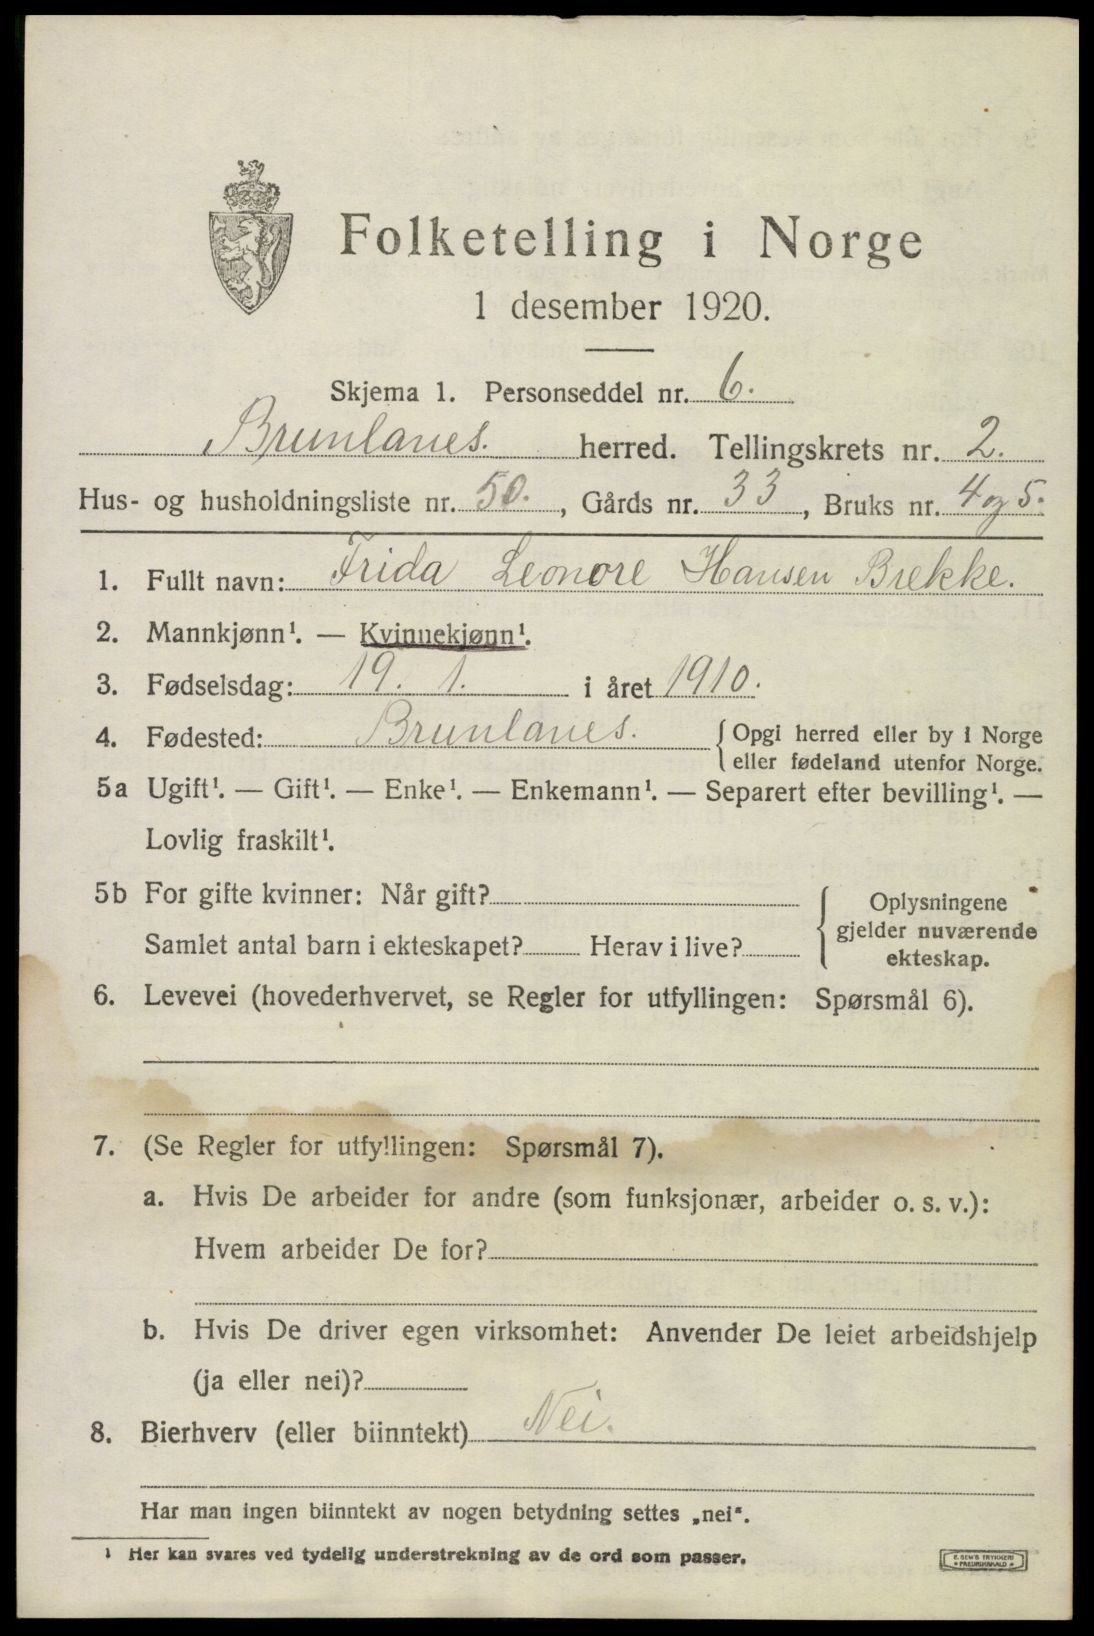 Folketelling i Norge
1 desember 1920.
Skjema 1. Personseddel nr. 6.
Brunlanes. herred. Tellingskrets nr. 2.
Hus- og husholdningsliste nr. 50., Gårds nr. 33, Bruks nr. 4 og 5.
1. Fullt navn: Frida Leonore Hansen Brekke.
2. Mannkjønn¹. — Kvinnekjønn¹.
3. Fødselsdag: 19. 1. i året 1910.
4. Fødested: Brunlanes. { Opgi herred eller by i Norge
eller fødeland utenfor Norge.
5a Ugift¹. — Gift¹. — Enke¹. — Enkemann¹. — Separert efter bevilling¹. —
Lovlig fraskilt¹.
5b For gifte kvinner: Når gift?
Samlet antal barn i ekteskapet? Herav i live?
{ Oplysningene
gjelder nuværende
ekteskap.
6. Levevei (hovederhvervet, se Regler for utfyllingen: Spørsmål 6).
7. (Se Regler for utfyllingen: Spørsmål 7).
a. Hvis De arbeider for andre (som funksjonær, arbeider o. s. v.):
Hvem arbeider De for?
b. Hvis De driver egen virksomhet: Anvender De leiet arbeidshjelp
(ja eller nei)?
8. Bierhverv (eller biinntekt) Nei.
Har man ingen biinntekt av nogen betydning settes „nei“.
¹ Her kan svares ved tydelig understrekning av de ord som passer.